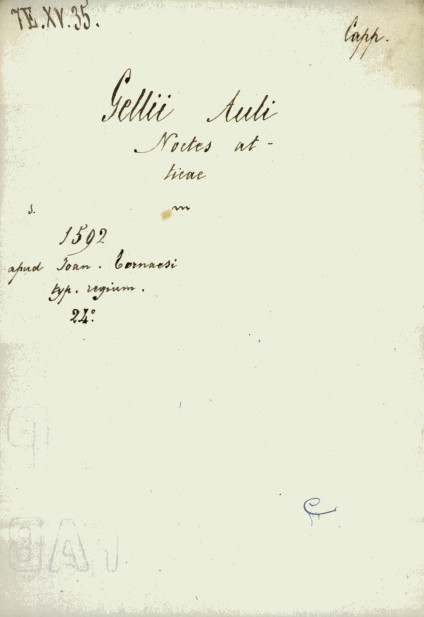 7E.XV.35.
Capp.
Gellii Auli
Noctes at-
ticae
s. m
1592
apud Joan. Tornaesi
typ. regium.
24º